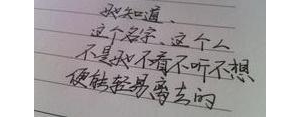 我知道、
这个名字 这个人
不是我不看不听不想
便能轻易离去的